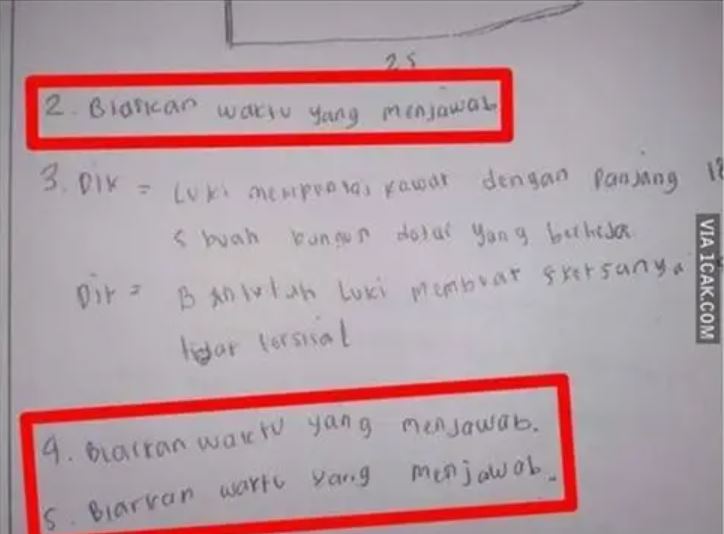 25
2. Biarkan waktu yang menjawab
3. Dik = Luki mempunyai kawat dengan Panjang 18
5 buah bangun datar yang berbeda
Dit = Bantulah Luki membuat sketsanya
tidak tersisa!
4. Biarkan waktu yang menjawab.
5. Biarkan waktu yang menjawab.
VIA 1CAK.COM